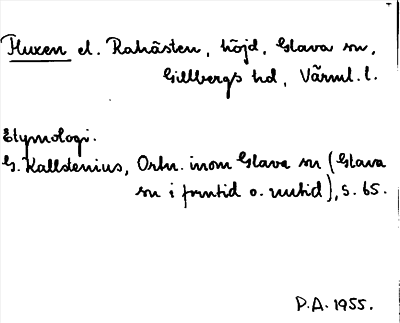 Huxen el. Rakåsten, höjd, Glava sn,
Gillbergs hd, Värml. l.
Etymologi.
G. Kallstenius, Ortn. inom Glava sn (Glava
sn i forntid o. nutid), s. 65.
P.A. 1955.